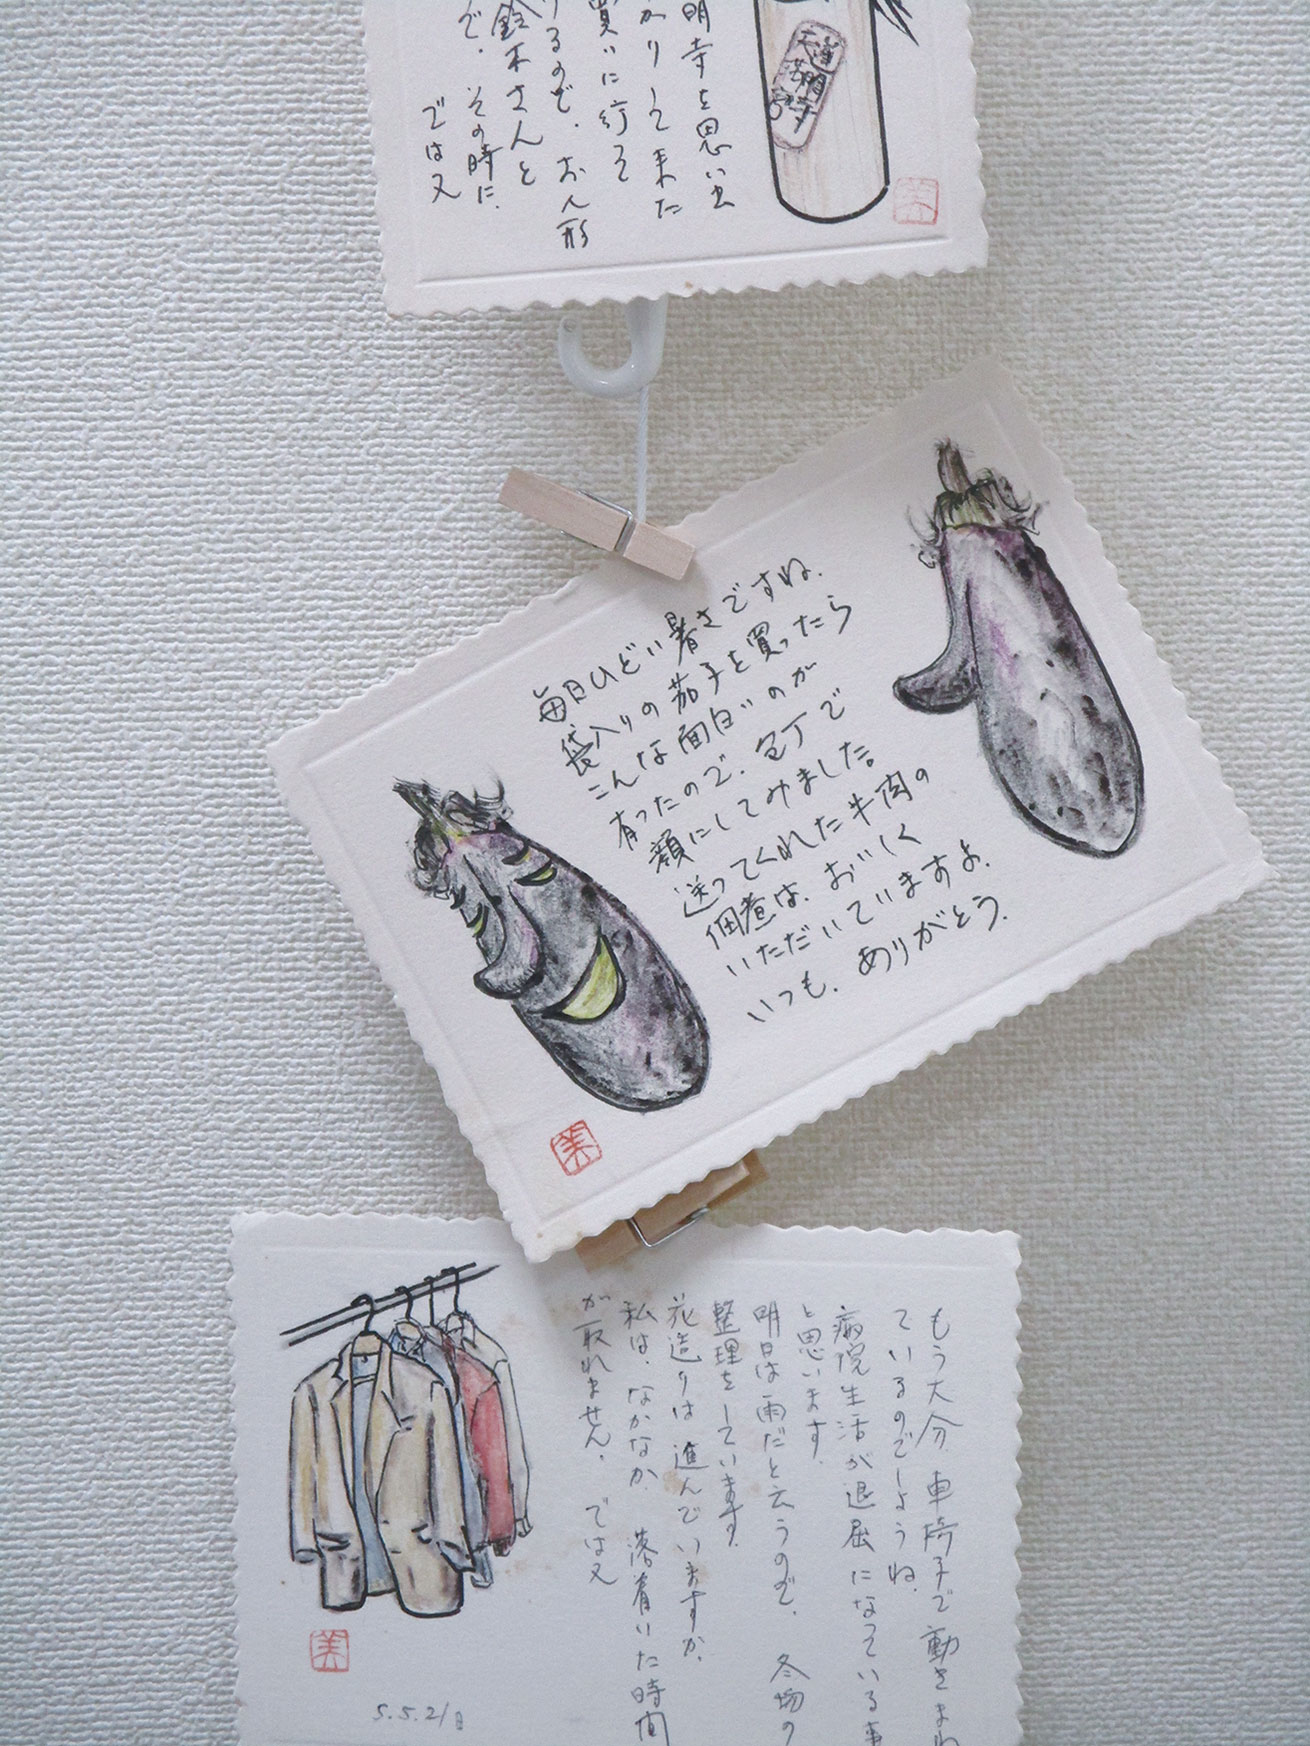 明寺を思い出
かりして来た
買いに行って
るので、お人形
鈴木さんと
で、その時に、
では又
道明寺
天満宮
毎日ひどい暑さですね、
袋入りの茄子を買ったら
こんな面白いのが
有ったので、包丁で
顔にしてみました。
送ってくれた牛肉の
佃煮は、おいしく
いただいていますよ、
いつも、ありがとう、
美
もう大分車椅子で動きまわ
ているのでしょうね、
病院生活が退屈になっている事
と思います、
明日は雨だと云うので、冬物の
整理をしています、
花造りは進んでいますか、
私は、なかなか、落着いた時間
が取れません、では又
美
5.5.21日